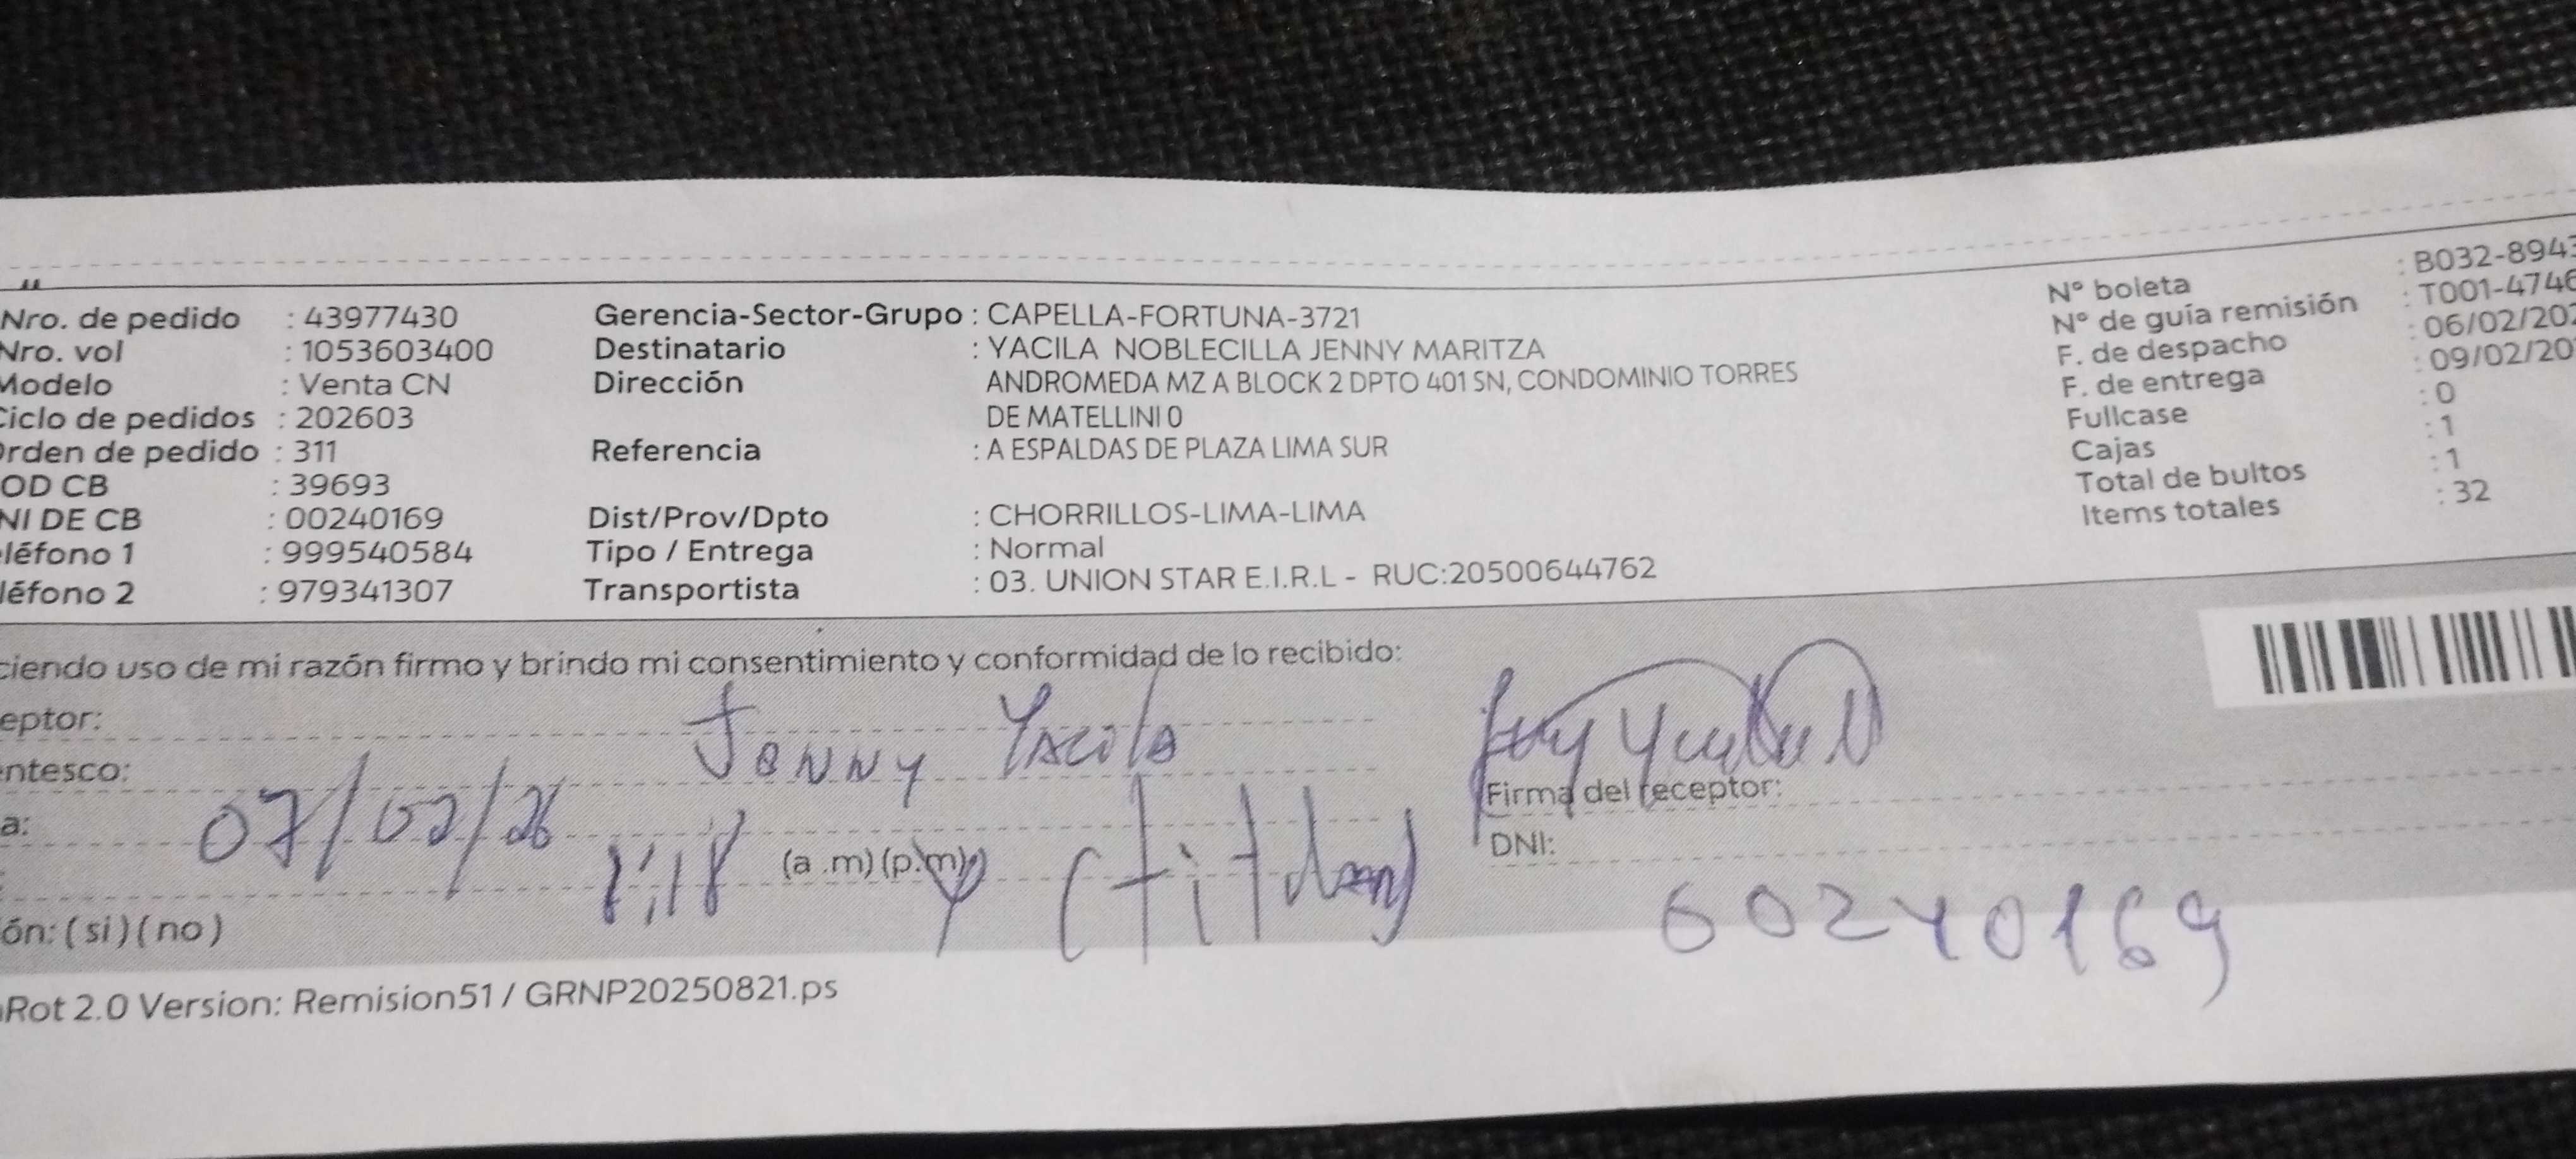 Nro. de pedido : 43977430 Gerencia-Sector-Grupo : CAPELLA-FORTUNA-3721 N° boleta : B032-8943
Nro. vol : 1053603400 Destinatario : YACILA NOBLECILLA JENNY MARITZA N° de guía remisión : T001-4746
Modelo : Venta CN Dirección ANDROMEDA MZ A BLOCK 2 DPTO 401 SN, CONDOMINIO TORRES F. de despacho : 06/02/202
Ciclo de pedidos : 202603 DE MATELLINI 0 F. de entrega : 09/02/20
Orden de pedido : 311 Referencia : A ESPALDAS DE PLAZA LIMA SUR Fullcase : 0
OD CB : 39693 Cajas : 1
NI DE CB : 00240169 Dist/Prov/Dpto : CHORRILLOS-LIMA-LIMA Total de bultos : 1
léfono 1 : 999540584 Tipo / Entrega : Normal Items totales : 32
léfono 2 : 979341307 Transportista : 03. UNION STAR E.I.R.L - RUC:20500644762
ciendo uso de mi razón firmo y brindo mi consentimiento y conformidad de lo recibido:
eptor: Jenny Yacila
entesco:
Firma del receptor:
a: 07/02/26
DNI: 00240169
1:18 (a .m) (p.m) (titular)
ón: ( si ) ( no )
Rot 2.0 Version: Remision51 / GRNP20250821.ps